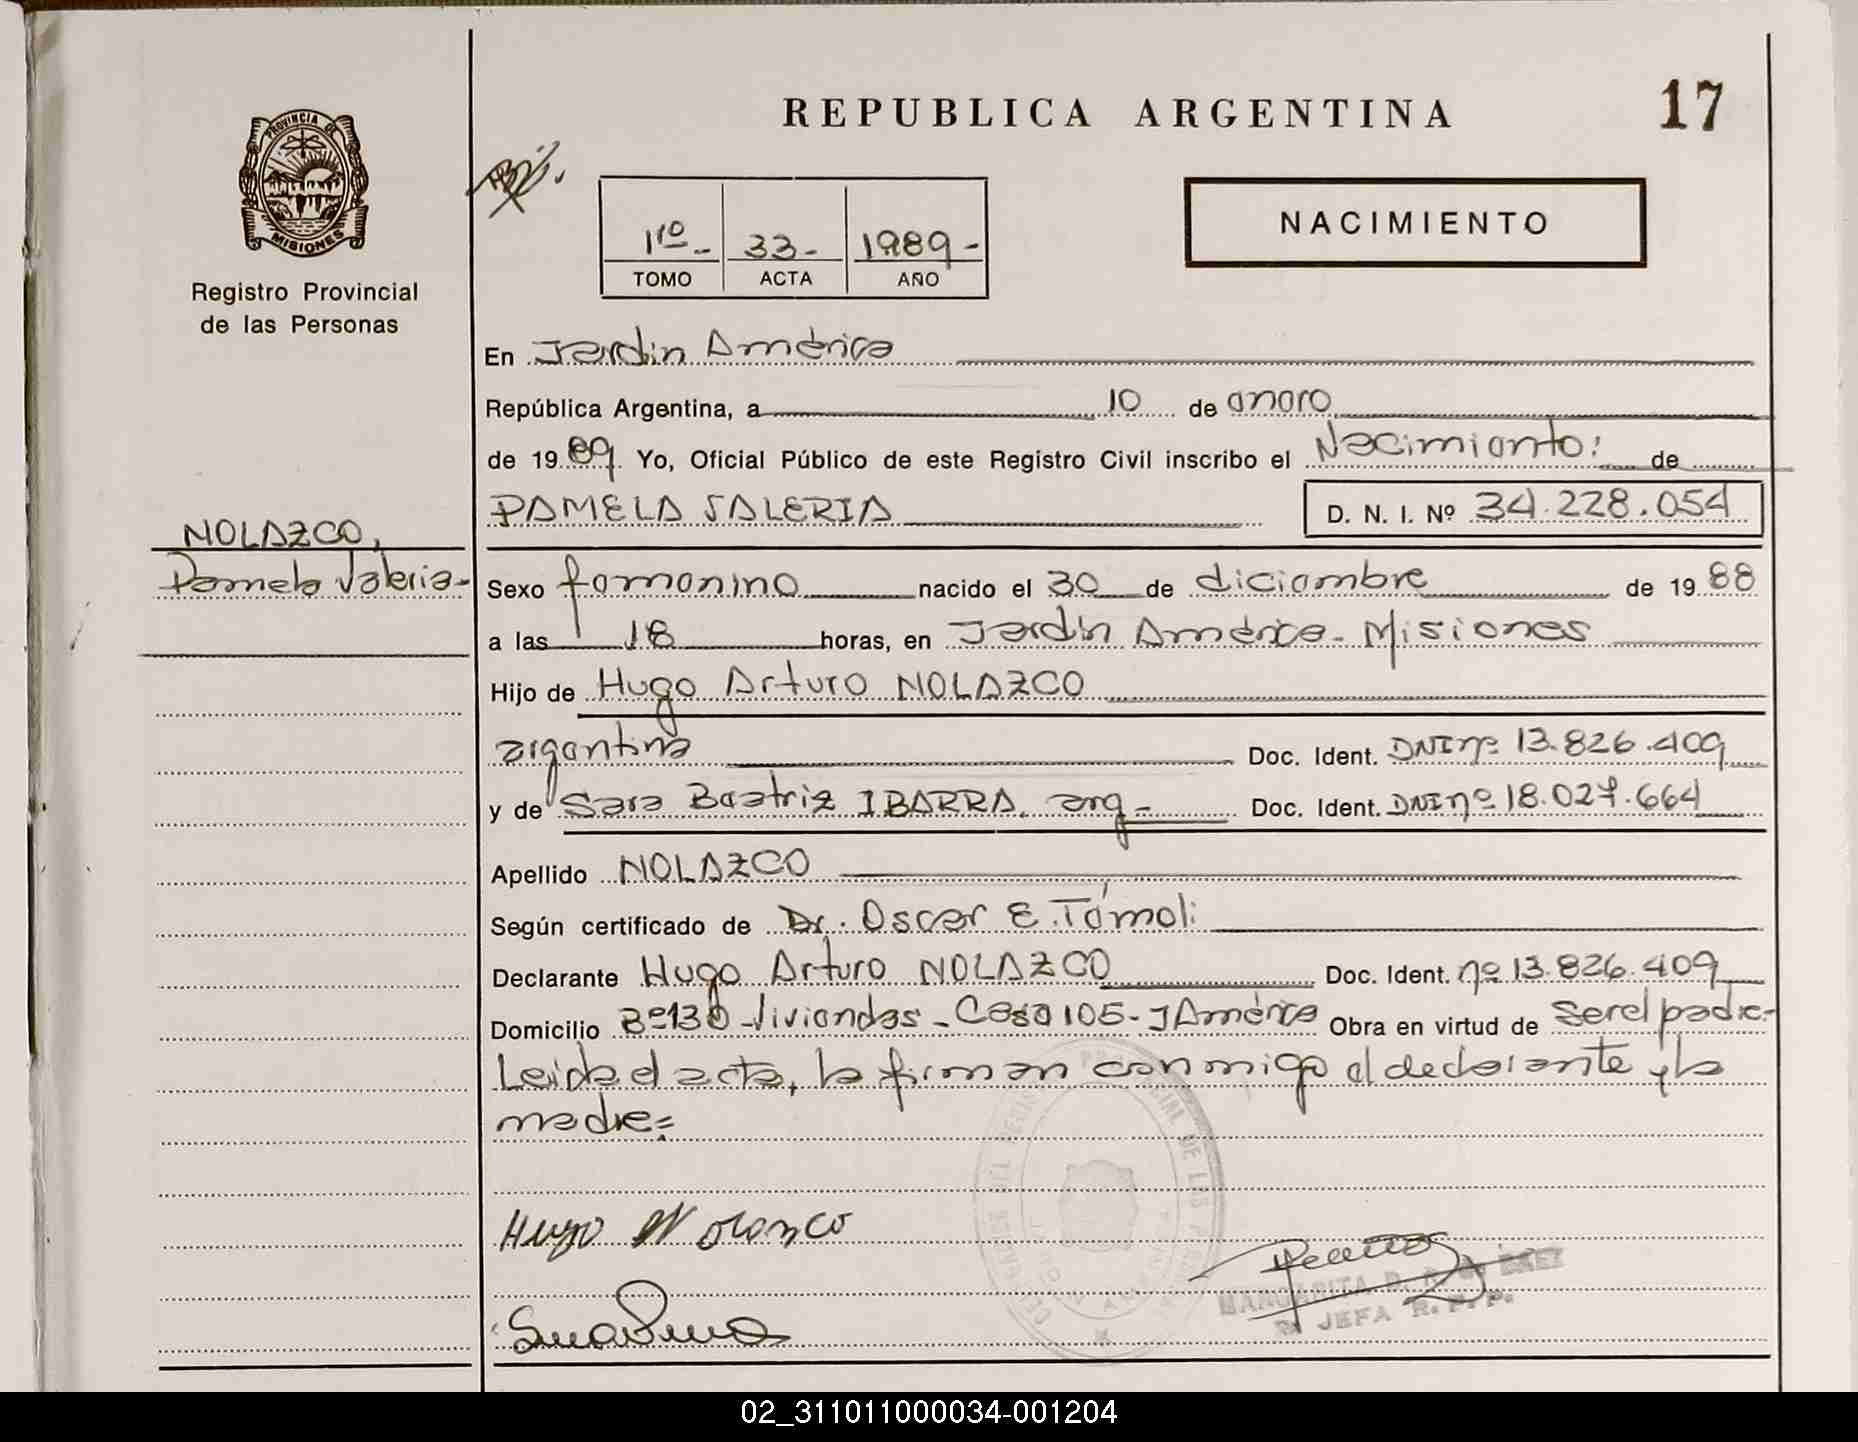 REPUBLICA ARGENTINA
17
PROVINCIA DE
MISIONES
Registro Provincial
de las Personas
1ro - 33 - 1989 -
TOMO ACTA AÑO
NACIMIENTO
En Jardín América
República Argentina, a 10 de enero
de 1989. Yo, Oficial Público de este Registro Civil inscribo el Nacimiento: de
PAMELA VALERIA D. N. I. Nº 34.228.054
NOLAZCO,
Pamela Valeria-
Sexo femenino nacido el 30 de diciembre de 1988
a las 18 horas, en Jardín América- Misiones
Hijo de Hugo Arturo NOLAZCO
argentina Doc. Ident. DNI nº 13.826.409
y de Sara Beatriz IBARRA, arg- Doc. Ident. DNI nº 18.027.664
Apellido NOLAZCO
Según certificado de Dr. Oscar E. Tómoli
Declarante Hugo Arturo NOLAZCO Doc. Ident. nº 13.826.409
Domicilio Bº130 Viviendas - Casa 105- J América Obra en virtud de ser el padre-
Leida el acta, la firman conmigo el declarante y la
madre=
Hugo Nolazco
MARGARITA
JEFA R. P. P.
02_311011000034-001204